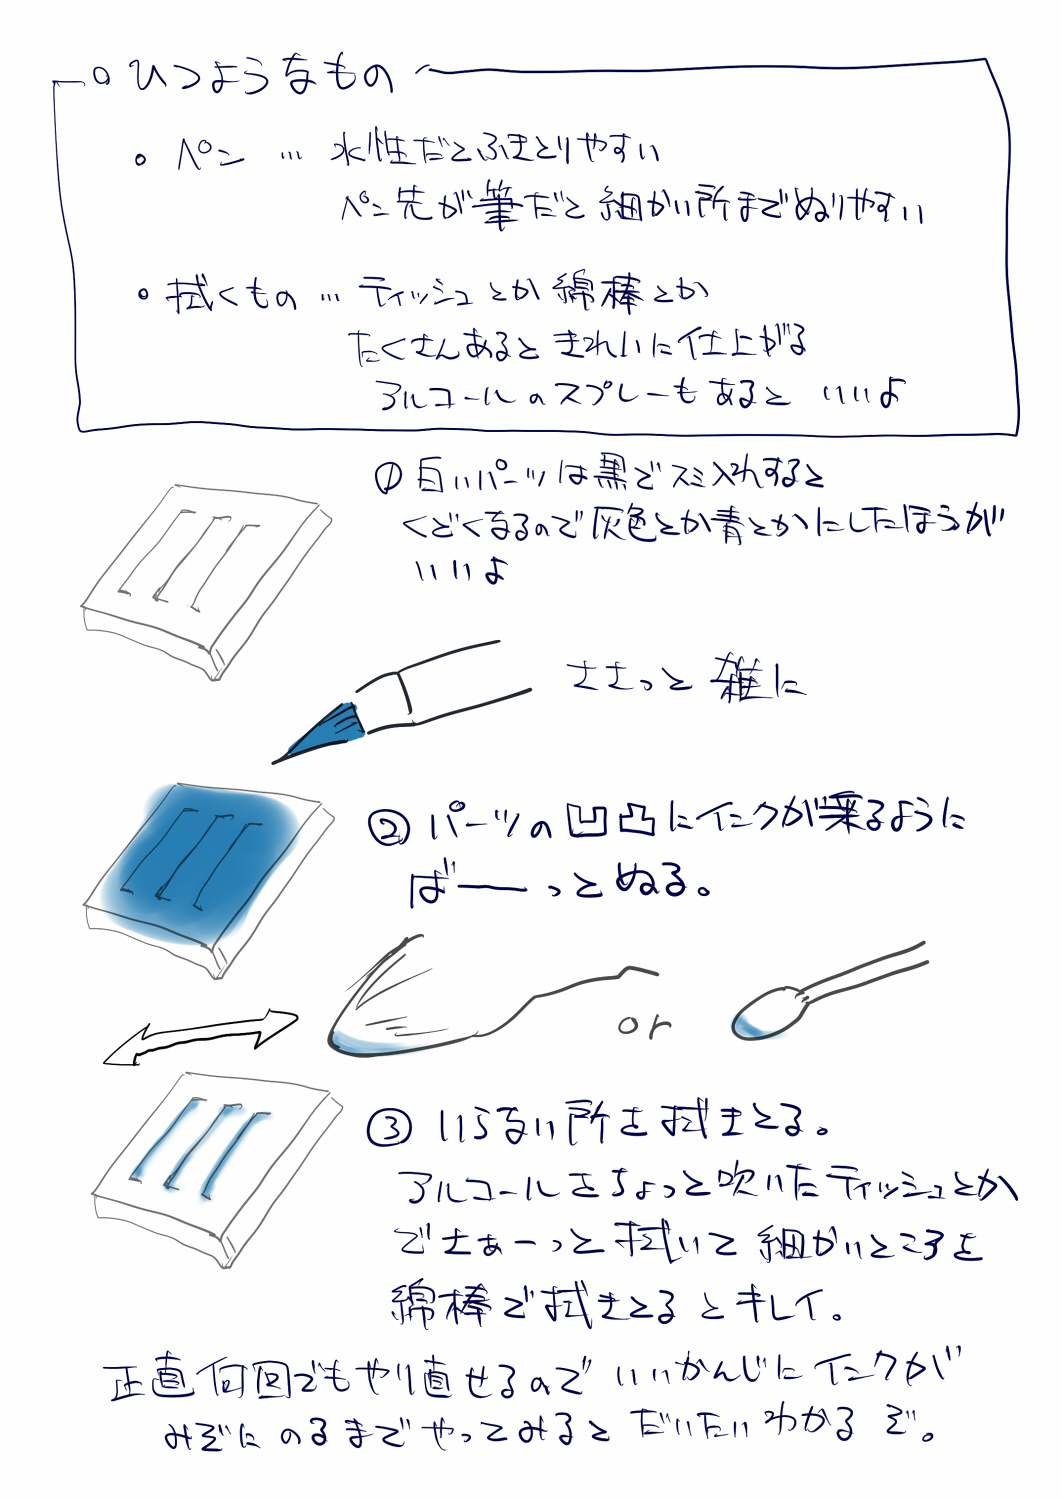 ○ ひつようなもの
・ ペン … 水性だとふきとりやすい
ペン先が筆だと細かい所までぬりやすい
・ 拭くもの … ティッシュとか綿棒とか
たくさんあるときれいに仕上がる
アルコールのスプレーもあると いいよ
① 白いパーツは黒でスミ入れすると
くどくなるので灰色とか青とかにしたほうが
いいよ
ささっと 雑に
② パーツの凹凸にインクが乗るように
ばーーっとぬる。
or
③ いらない所を拭きとる。
アルコールをちょっと吹いたティッシュとか
でさぁーっと拭いて細かいところを
綿棒で拭きとるとキレイ。
正直何回でもやり直せるので いいかんじにインクが
みぞに のるまでやってみると だいたいわかるぞ。